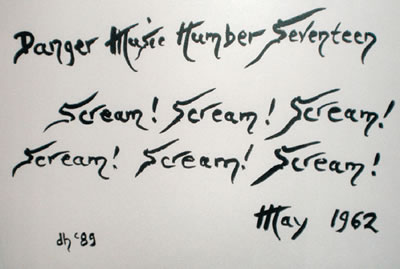 Danger Music Number Seventeen
Scream! Scream! Scream!
Scream! Scream! Scream!
May 1962
dh '89